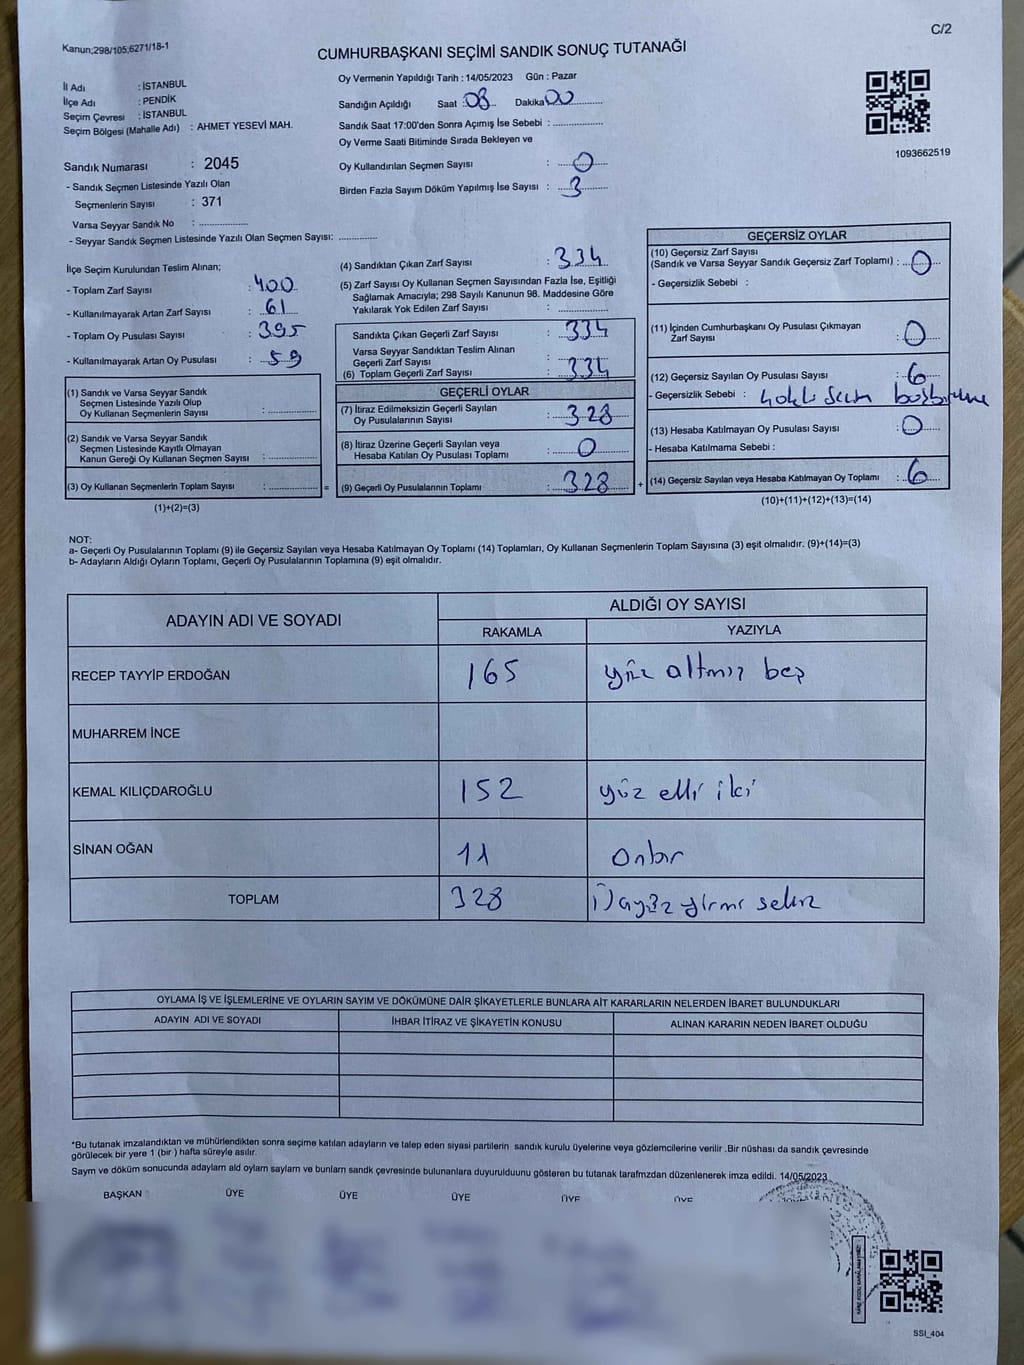 C/2
Kanun;298/105;6271/18-1
CUMHURBAŞKANI SEÇİMİ SANDIK SONUÇ TUTANAĞI
İl Adı : İSTANBUL
İlçe Adı : PENDİK
Seçim Çevresi : İSTANBUL
Seçim Bölgesi (Mahalle Adı) : AHMET YESEVİ MAH.
Sandık Numarası : 2045
- Sandık Seçmen Listesinde Yazılı Olan
Seçmenlerin Sayısı : 371
Varsa Seyyar Sandık No : ....................
- Seyyar Sandık Seçmen Listesinde Yazılı Olan Seçmen Sayısı: ...............
Oy Vermenin Yapıldığı Tarih : 14/05/2023 Gün : Pazar
Sandığın Açıldığı Saat : 08 Dakika 00
Sandık Saat 17:00'den Sonra Açımış İse Sebebi : ....................
Oy Verme Saati Bitiminde Sırada Bekleyen ve
Oy Kullandırılan Seçmen Sayısı : 0
Birden Fazla Sayım Döküm Yapılmış İse Sayısı : 3
1093662519
İlçe Seçim Kurulundan Teslim Alınan;
- Toplam Zarf Sayısı : 400
- Kullanılmayarak Artan Zarf Sayısı : 61
- Toplam Oy Pusulası Sayısı : 395
- Kullanılmayarak Artan Oy Pusulası : 59
(1) Sandık ve Varsa Seyyar Sandık
Seçmen Listesinde Yazılı Olup
Oy Kullanan Seçmenlerin Sayısı : ...............
(2) Sandık ve Varsa Seyyar Sandık
Seçmen Listesinde Kayıtlı Olmayan
Kanun Gereği Oy Kullanan Seçmen Sayısı : ...............
(3) Oy Kullanan Seçmenlerin Toplam Sayısı : ............... =
(1)+(2)=(3)
(4) Sandıktan Çıkan Zarf Sayısı : 334
(5) Zarf Sayısı Oy Kullanan Seçmen Sayısından Fazla İse, Eşitliği
Sağlamak Amacıyla; 298 Sayılı Kanunun 98. Maddesine Göre
Yakılarak Yok Edilen Zarf Sayısı : ...............
Sandıkta Çıkan Geçerli Zarf Sayısı : 334
Varsa Seyyar Sandıktan Teslim Alınan
Geçerli Zarf Sayısı : ...............
(6) Toplam Geçerli Zarf Sayısı : 334
GEÇERLİ OYLAR
(7) İtiraz Edilmeksizin Geçerli Sayılan
Oy Pusulasının Sayısı : 328
(8) İtiraz Üzerine Geçerli Sayılan veya
Hesaba Katılan Oy Pusulası Toplamı : 0
(9) Geçerli Oy Pusulalarının Toplamı : 328 +
GEÇERSİZ OYLAR
(10) Geçersiz Zarf Sayısı
(Sandık ve Varsa Seyyar Sandık Geçersiz Zarf Toplamı) : 0
- Geçersizlik Sebebi :
(11) İçinden Cumhurbaşkanı Oy Pusulası Çıkmayan
Zarf Sayısı : 0
(12) Geçersiz Sayılan Oy Pusulası Sayısı : 6
- Geçersizlik Sebebi :
(13) Hesaba Katılmayan Oy Pusulası Sayısı : 0
- Hesaba Katılmama Sebebi :
(14) Geçersiz Sayılan veya Hesaba Katılmayan Oy Toplamı : 6
(10)+(11)+(12)+(13)=(14)
NOT:
a- Geçerli Oy Pusulalarının Toplamı (9) ile Geçersiz Sayılan veya Hesaba Katılmayan Oy Toplamı (14) Toplamları, Oy Kullanan Seçmenlerin Toplam Sayısına (3) eşit olmalıdır. (9)+(14)=(3)
b- Adayların Aldığı Oyların Toplamı, Geçerli Oy Pusulalarının Toplamına (9) eşit olmalıdır.
ADAYIN ADI VE SOYADI ALDIĞI OY SAYISI
RAKAMLA YAZIYLA
RECEP TAYYİP ERDOĞAN 165 yüz altmış beş
MUHARREM İNCE
KEMAL KILIÇDAROĞLU 152 yüz elli iki
SİNAN OĞAN 11 Onbir
TOPLAM 328 Üçyüz yirmi sekiz
OYLAMA İŞ VE İŞLEMLERİNE VE OYLARIN SAYIM VE DÖKÜMÜNE DAİR ŞİKAYETLERLE BUNLARA AİT KARARLARIN NELERDEN İBARET BULUNDUKLARI
ADAYIN ADI VE SOYADI İHBAR İTİRAZ VE ŞİKAYETİN KONUSU ALINAN KARARIN NEDEN İBARET OLDUĞU
*Bu tutanak imzalandıktan ve mühürlendikten sonra seçime katılan adayların ve talep eden siyasi partilerin sandık kurulu üyelerine veya gözlemcilerine verilir .Bir nüshası da sandık çevresinde
görülecek bir yere 1 (bir ) hafta süreyle asılır.
Sayım ve döküm sonucunda adayların ald oyların sayların ve bunların sandk çevresinde bulunanlara duyurulduunu gösteren bu tutanak tarafmzdan düzenlenerek imza edildi. 14/05/2023
BAŞKAN ÜYE ÜYE ÜYE ÜYE ÜYE
SSI_404